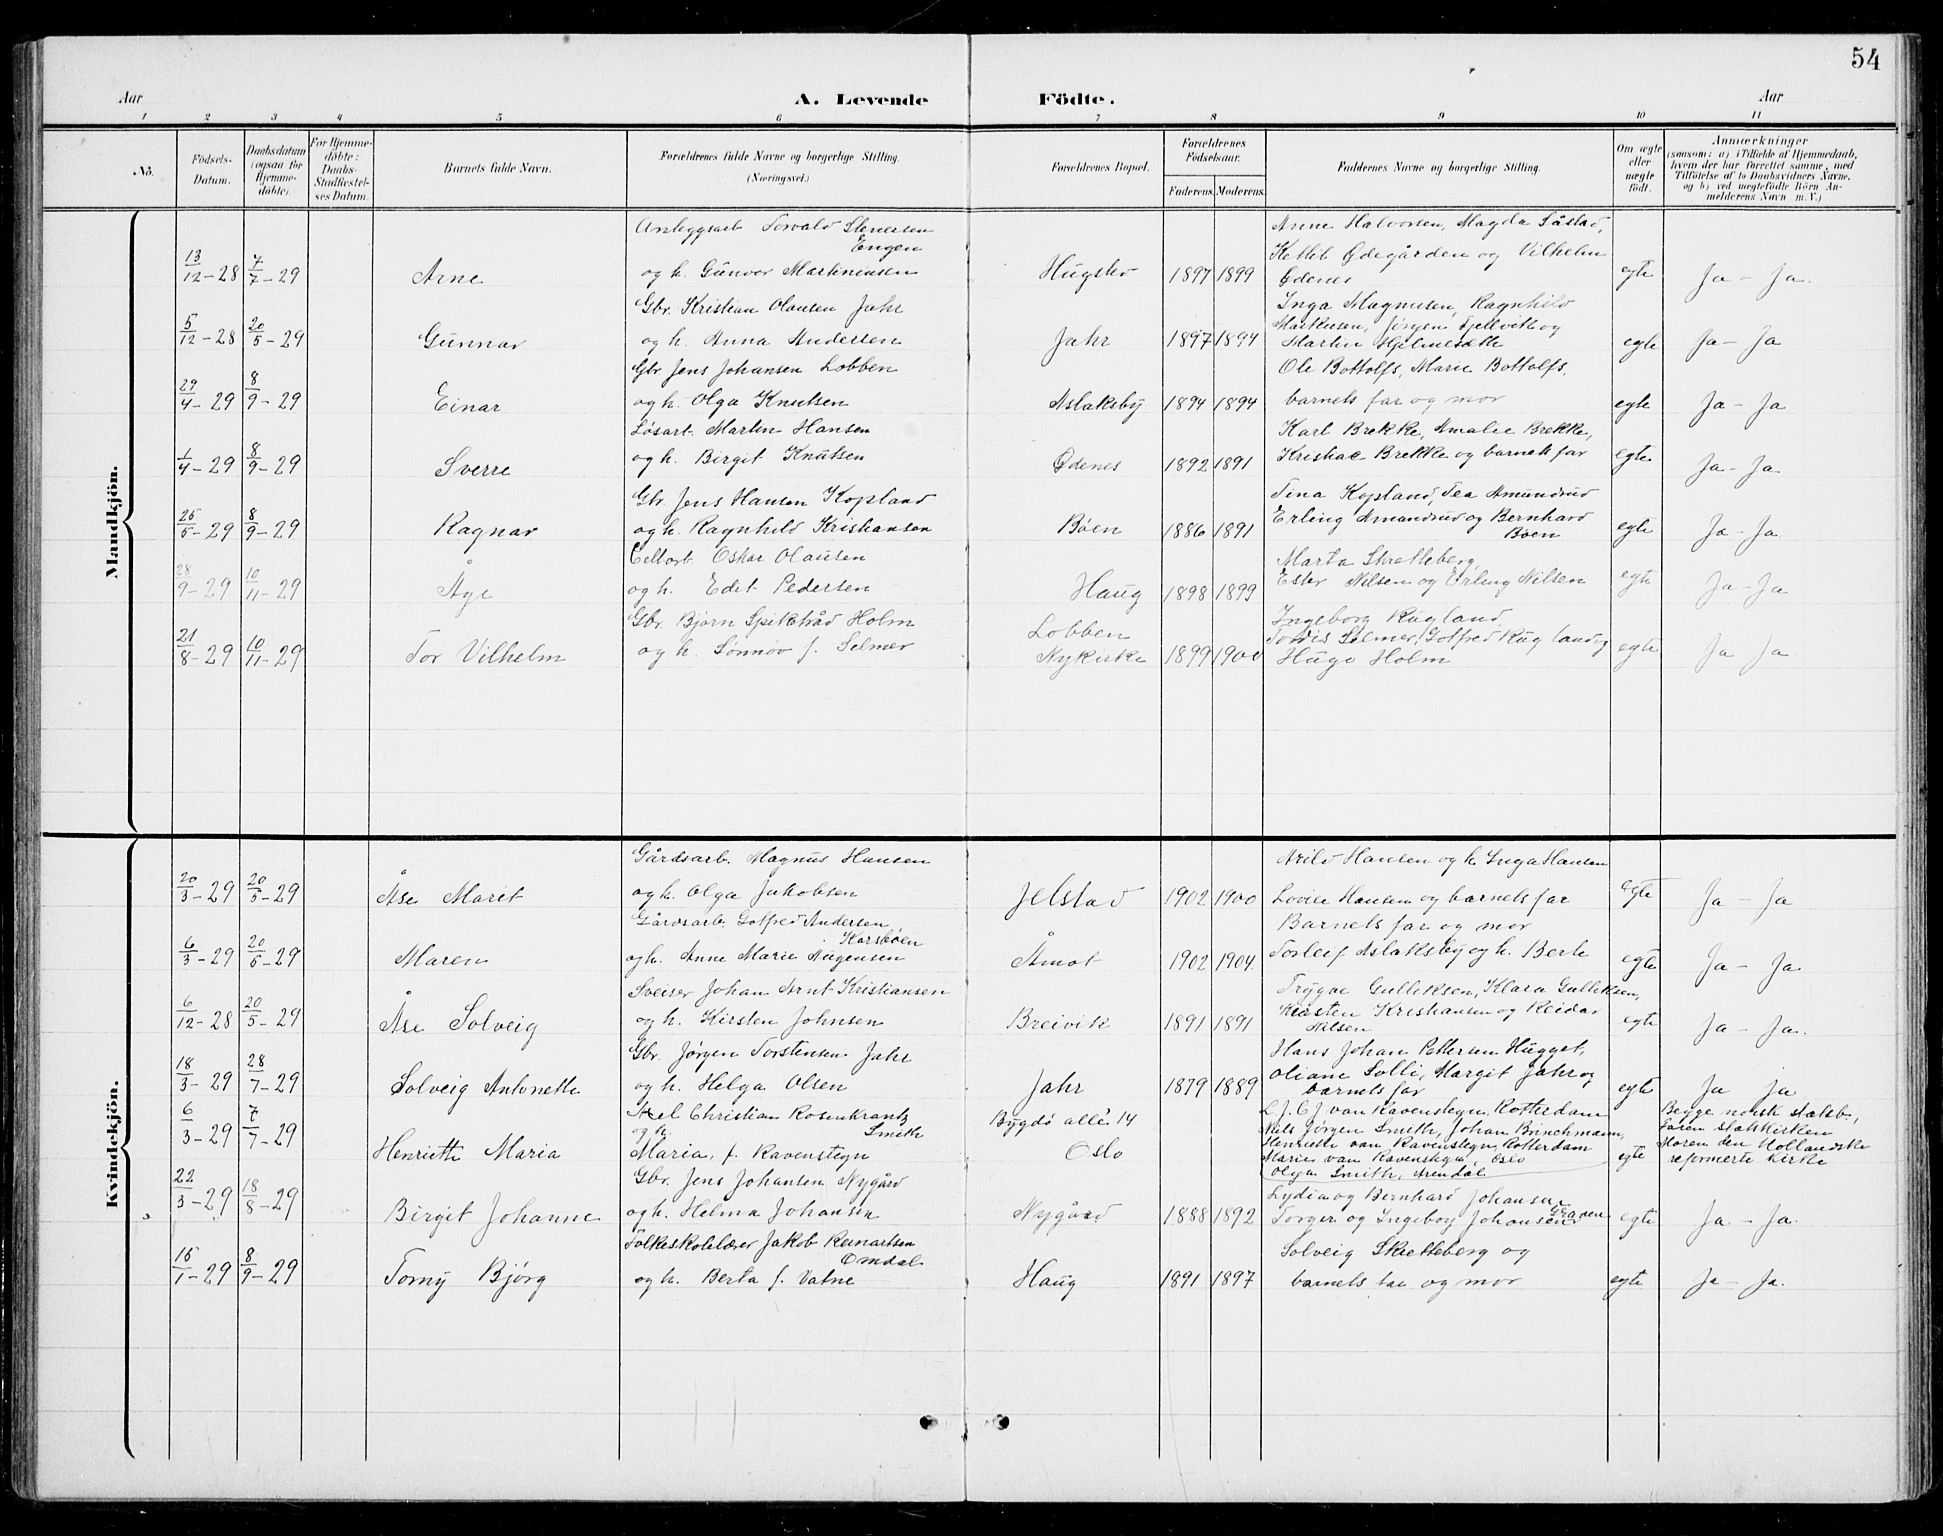 54
Aar
A. Levende Födte.
Aar
1 2 3 4 5 6 7 8 9 10 11
No.
Födsels-Datum.
Daabsdatum (ogsaa for Hjemme-döbte).
For Hjemme-döbte: Daabs-Stadfæstel-ses Datum.
Barnets fulde Navn.
Forældrenes fulde Navne og borgerlige Stilling. (Næringsvei.)
Forældrenes Bopæl.
Forældrenes Födselsaar.
Faderens. Moderens.
Faddernes Navne og borgerlige Stilling.
Om ægte eller uægte födt.
Anmærkninger
(saasom: a) i Tilfælde af Hjemmedaab, hvem der har forrettet samme, med Tilföielse af to Daabsvidners Navne, og b) ved uægtefödte Börn An-melderens Navn m. V.)
Mandkjön.
Anleggsarb Torvald Stenersen Engen
Anne Halvorsen, Magda Såstad,
13/12-28 7/7-29 Arne og h. Gunvor Martinsen Hugstev 1897 1899 Ketlil Ødegården og Vilhelm Ødenes egte Ja - ja.
Gbr. Kristian Olausen Jahr
Inga Magnusen, Ragnhild
5/12-28 20/5-29 Gunnar og h. Anna Andersen Jahr 1897 1894 Markusen, Jørgen Fjellvik og Martin Hjelmesæth egte Ja - Ja
Gbr Jens Johansen Lobben
Ole Bottolfs, Marie Bottolfs,
29/4-29 8/9-29 Einar og h. Olga Knutsen Aslaksby 1894 1894 barnets far og mor egte Ja - Ja
Løsarb. Martin Hansen
Karl Brekke, Amalie Brekke,
1/4-29 8/9-29 Sverre og h. Birgit Knutsen Ødenes 1892 1891 Kristiac Brekke og barnets far egte Ja - Ja
Gbr. Jens Hansen Kopland
Tina Kopland, Tea Amundrud
25/5-29 8/9-29 Ragnar og h. Ragnhild Kristiansen Bøen 1886 1891 Erling Amundrud og Bernhard Bøen egte Ja - Ja
Cellarb Oskar Olausen
Marta Skretteberg,
28/9-29 10/11-29 Åge og h. Edit Pedersen Haug 1898 1899 Ester Nilsen og Erling Nilsen egte Ja - Ja
Gbr. Bjørn Spikstråd Holm
Ingeborg Rugland,
21/8-29 10/11-29 Tor Vilhelm og h. Sønnøv f. Selmer Lobben Nykirke 1899 1900 Tordis Selmer, Gotfred Rugland og Hugo Holm egte Ja Ja
Kvindekjön.
Gårdsarb. Magnus Hansen
Arild Hansen og h. Inga Hansen
20/3-29 20/5-29 Åse Marit og h. Olga Jakobsen Jelstad 1902 1900 Lovise Hansen og barnets far egte Ja - Ja
Gårdsarb. Gotfred Andersen Korsbøen
Barnets far og mor
6/3-29 20/5-29 Maren og h. Anne Marie Augensen Åmot 1902 1904 Torleif Aslaksby og h. Berte egte Ja - Ja
Sveiser Johan Arnt Kristiansen
Trygve Gulliksen, Klara Gulliksen,
6/12-28 20/5-29 Åse Solveig og h. Kirsten Johnsen Breivik 1891 1891 Kirsten Kristiansen og Reidar Nilsen egte Ja - Ja.
Gbr. Jørgen Torstensen Jahr
Hans Johan Pettersen Hugget,
18/3-29 28/7-29 Solveig Antonette og h. Helga Olsen Jahr 1879 1889 Oliane Solli, Margit Jahr og barnets far egte Ja ja
6/3-29 7/7-29 Henriette Maria Axel Christian Rosenkrantz Smith og h. Maria, f. Ravenstegn Bygdö allé 14 Oslo
L. J. C. J. van Ravenstegn, Rotterdam
Nils Jörgen Smith, Johan Brinchmann,
Henriette van Ravenstegn, Rotterdam
Marie van Ravenstegn, Oslo
Olga Smith, Arendal
egte
Begge norske statsb.,
Faren statskirken
Moren den Hollandske
reformerte kirke
Gbr. Jens Johansen Nygård
Lydia og Bernhard Johansen
22/3-29 18/8-29 Birgit Johanne og h. Helma Johansen Nygård 1888 1892 Torger og Ingeborg Johansen Graven egte Ja - Ja.
Folkeskolelærer Jakob Reinartsen Omdal
Solveig Skretteberg og
15/1-29 8/9-29 Torny Bjørg og h. Berta f. Vatne Haug 1891 1897 barnets far og mor egte Ja - Ja.